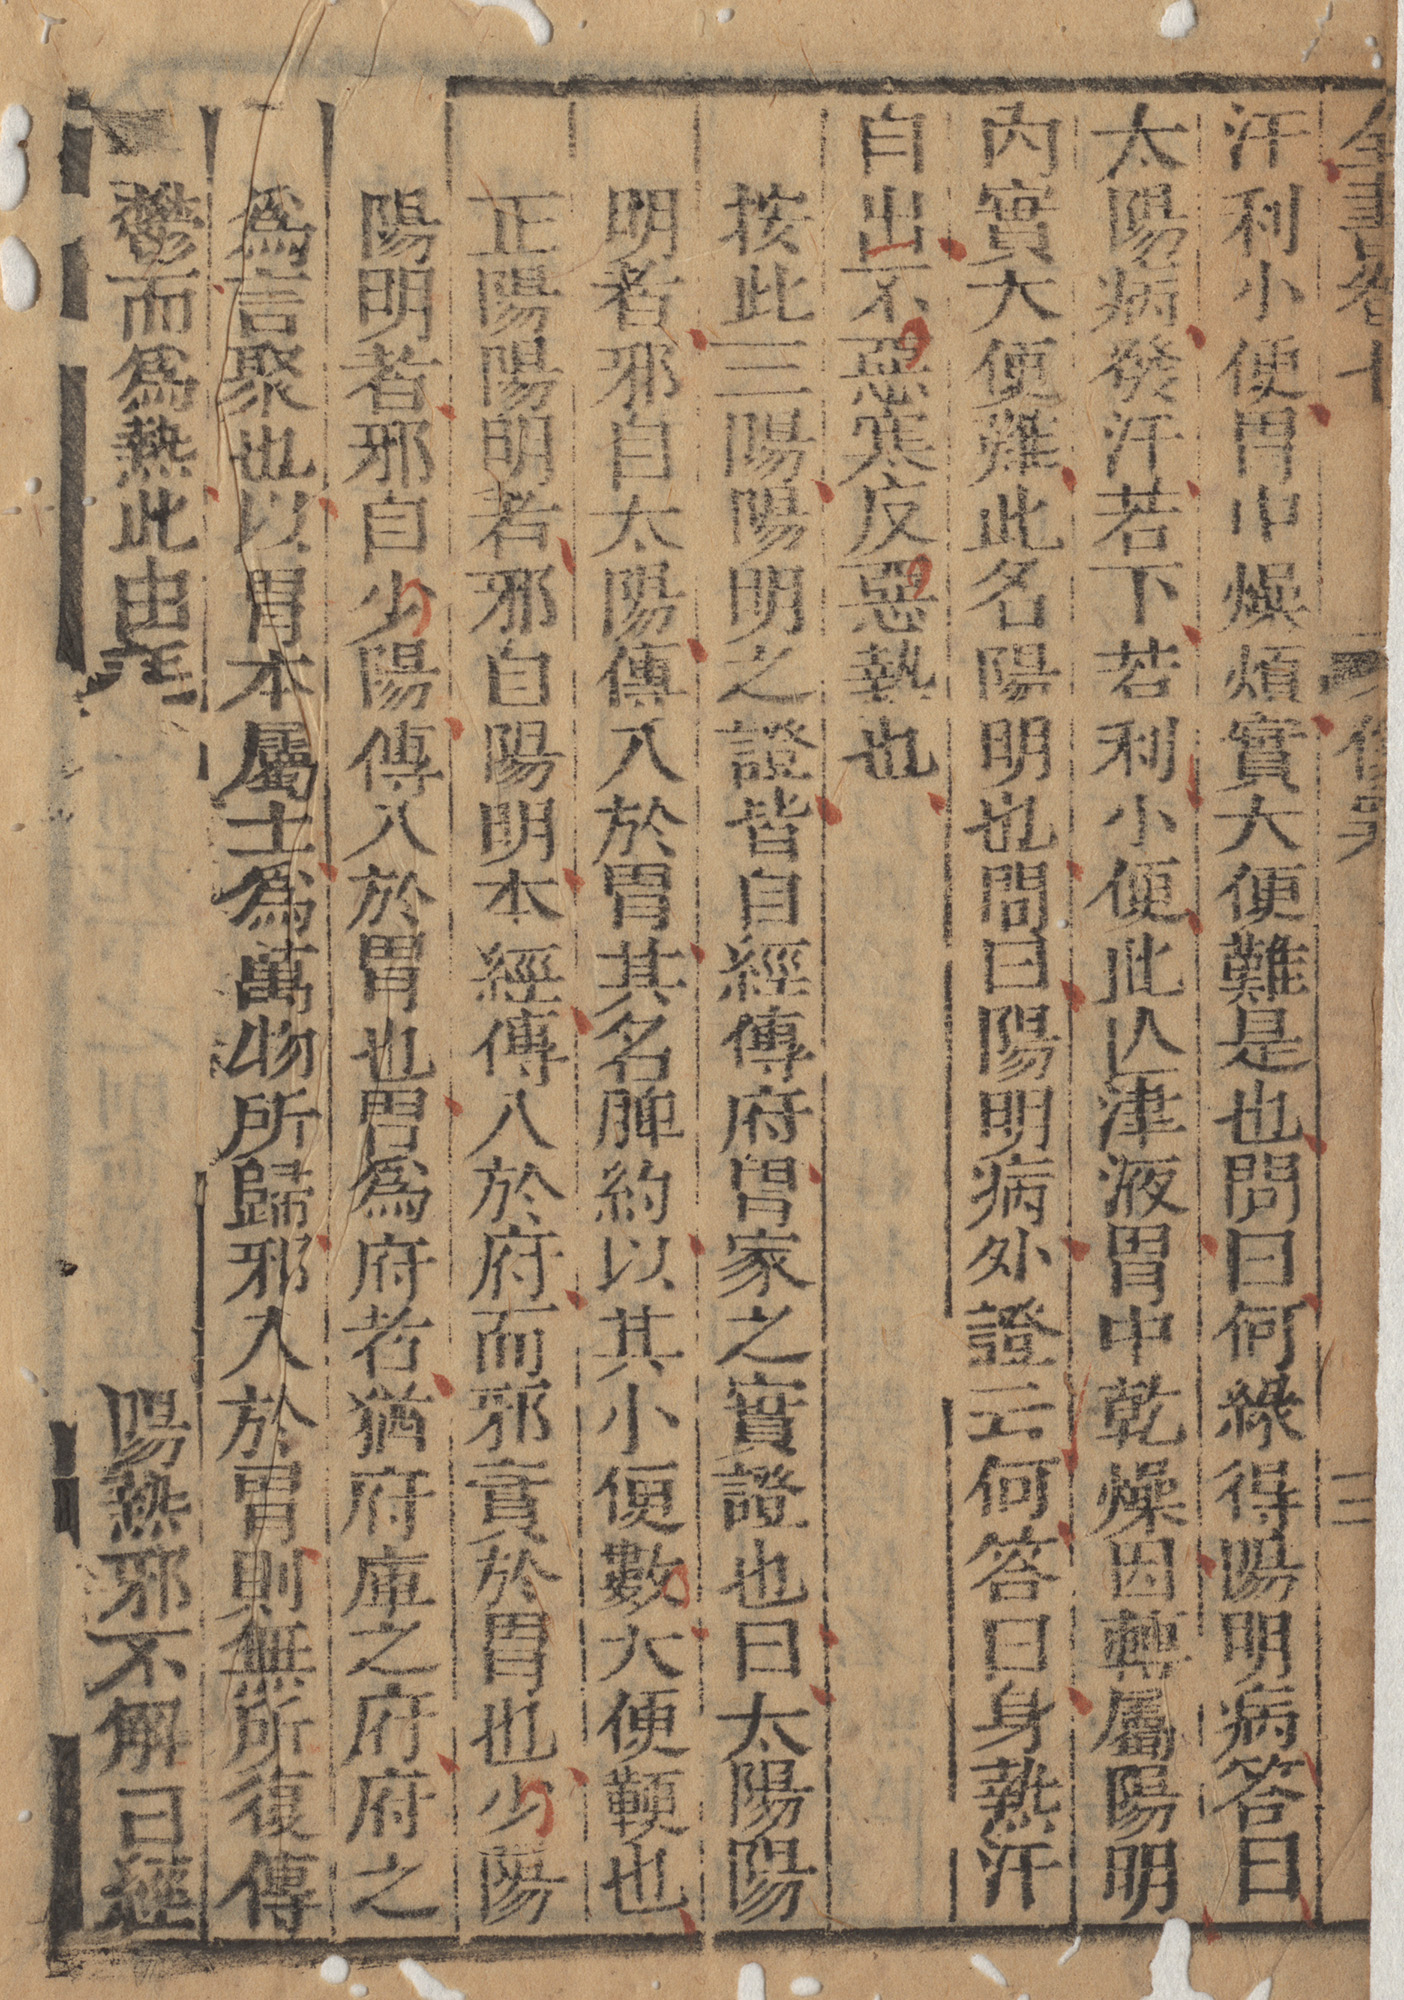 全書卷七
汗利小便胃中燥煩實大便難是也問曰何緣得陽明病答曰
太陽病發汗若下若利小便此亾津液胃中乾燥因轉屬陽明
內實大便難此名陽明也問曰陽明病外證云何答曰身熱汗
自出不惡寒反惡熱也
按此三陽陽明之證皆自經傳府胃家之實證也曰太陽陽
明者邪自太陽傳入於胃其名脾約以其小便數大便鞕也
正陽陽明者邪自陽明本經傳入於府而邪實於胃也少陽
陽明者邪自少陽傳入於胃也胃爲府者猶府庫之府府之
爲言聚也以胃本屬土爲萬物所歸邪入於胃則無所復傳
鬱而爲熱此由 陽熱邪不解曰經